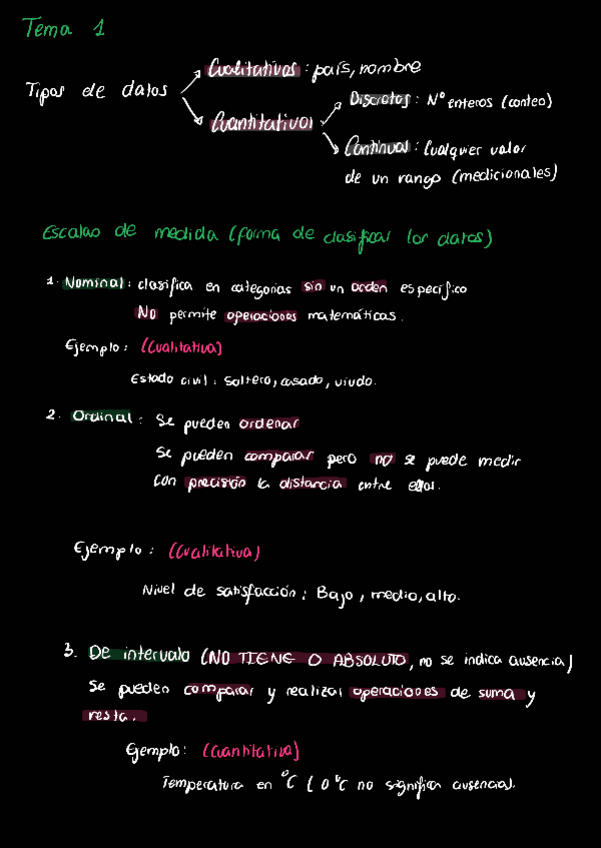 Tema 1
Cualitativos: país, nombre
Tipos de datos
Discretos: Nº enteros (conteo)
Cuantitativos
Continuas: Cualquier valor
de un rango (medicionales)
Escalas de medida (forma de clasificar los datos)
1. Nominal: clasifica en categorias sin un orden específico
No permite operaciones matemáticas.
Ejemplo: (Cualitativa)
Estado civil: Soltero, casado, viudo.
2. Ordinal: Se pueden ordenar
Se pueden comparar pero no se puede medir
con precisión la distancia entre ellos.
Ejemplo: (Cualitativa)
Nivel de satisfacción: Bajo, medio, alto.
3. De intervalo (NO TIENE 0 ABSOLUTO, no se indica ausencia)
Se pueden comparar y realizar operaciones de suma y
resta.
Ejemplo: (Cuantitativa)
Temperatura en °C (0°C no significa ausencia).